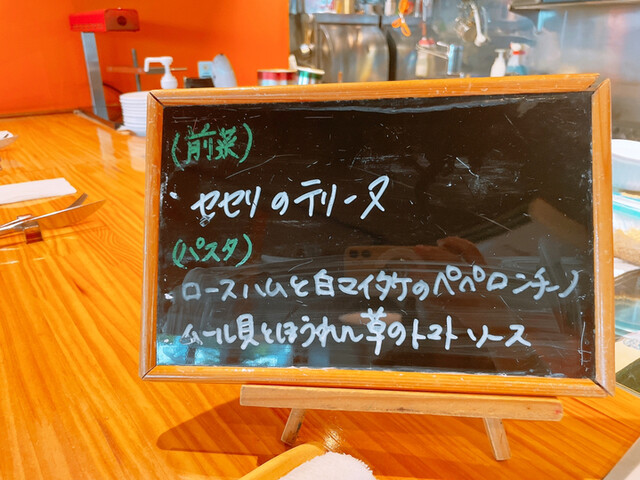 (前菜)
・セセリのテリーヌ
(パスタ)
ロースハムと白マイタケのペペロンチーノ
ムール貝とほうれん草のトマトソース